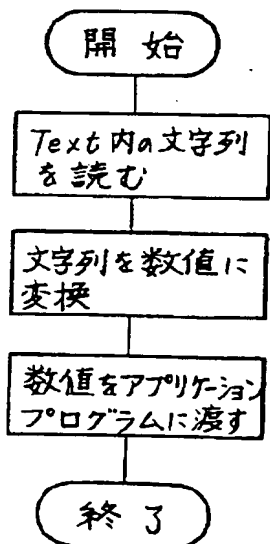 開始
Text内の文字列
を読む
文字列を数値に
変換
数値をアプリケーション
プログラムに渡す
終了